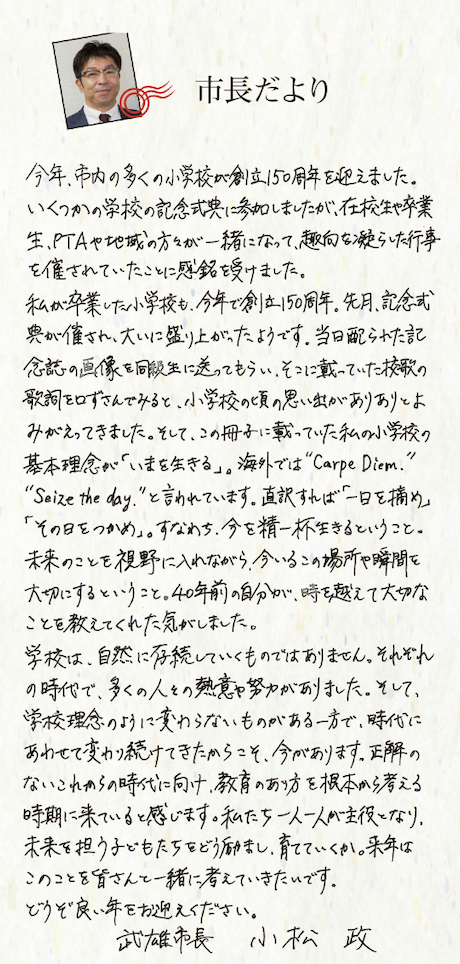 市長だより
今年、市内の多くの小学校が創立150周年を迎えました。
いくつかの学校の記念式典に参加しましたが、在校生や卒業
生、PTAや地域の方々が一緒になって、趣向を凝らした行事
を催されていたことに感銘を受けました。
私が卒業した小学校も、今年で創立150周年。先月、記念式
典が催され、大いに盛り上がったようです。当日配られた記
念誌の画像を同級生に送ってもらい、そこに載っていた校歌の
歌詞を口ずさんでみると、小学校の頃の思い出がありありとよ
みがえってきました。そして、この冊子に載っていた私の小学校の
基本理念が「いまを生きる」。海外では“Carpe Diem.”
“Seize the day.”と言われています。直訳すれば「一日を摘め」
「その日をつかめ」。すなわち、今を精一杯生きるということ。
未来のことを視野に入れながら、今いるこの場所や瞬間を
大切にするということ。40年前の自分が、時を越えて大切な
ことを教えてくれた気がしました。
学校は、自然に存続していくものではありません。それぞれ
の時代で、多くの人々の熱意や努力がありました。そして、
学校理念のように変わらないものがある一方で、時代に
あわせて変わり続けてきたからこそ、今があります。正解の
ないこれからの時代に向け、教育のあり方を根本から考える
時期に来ていると感じます。私たち一人一人が主役となり、
未来を担う子どもたちをどう励まし、育てていくか。来年は
このことを皆さんと一緒に考えていきたいです。
どうぞ良い年をお迎えください。
武雄市長 小松 政